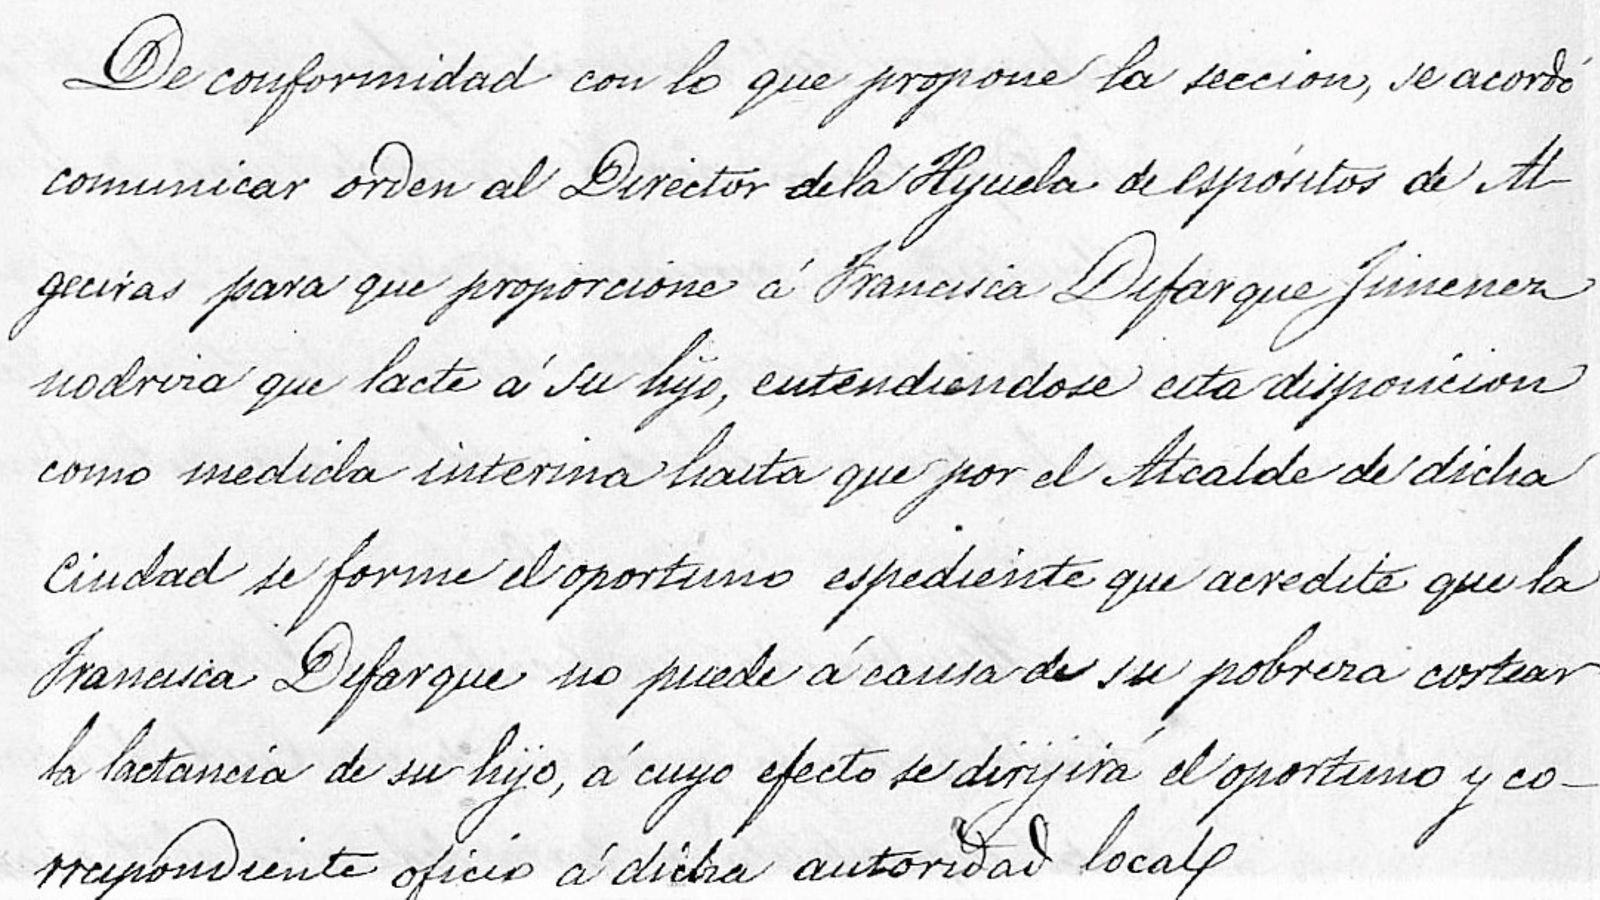 De conformidad con lo que propone la seccion, se acordó
comunicar orden al Director de la Hijuela de espósitos de Al-
geciras para que proporcione á Francisca Difarque Jimenez
nodriza que lacte á su hijo, entendiendose esta disposicion
como medida interina hasta que por el Alcalde de dicha
Ciudad se forme el oportuno espediente que acredite que la
Francisca Difarque no puede á causa de su pobreza costear
la lactancia de su hijo, á cuyo efecto se dirijirá el oportuno y co-
rrespondiente oficio á dicha autoridad local